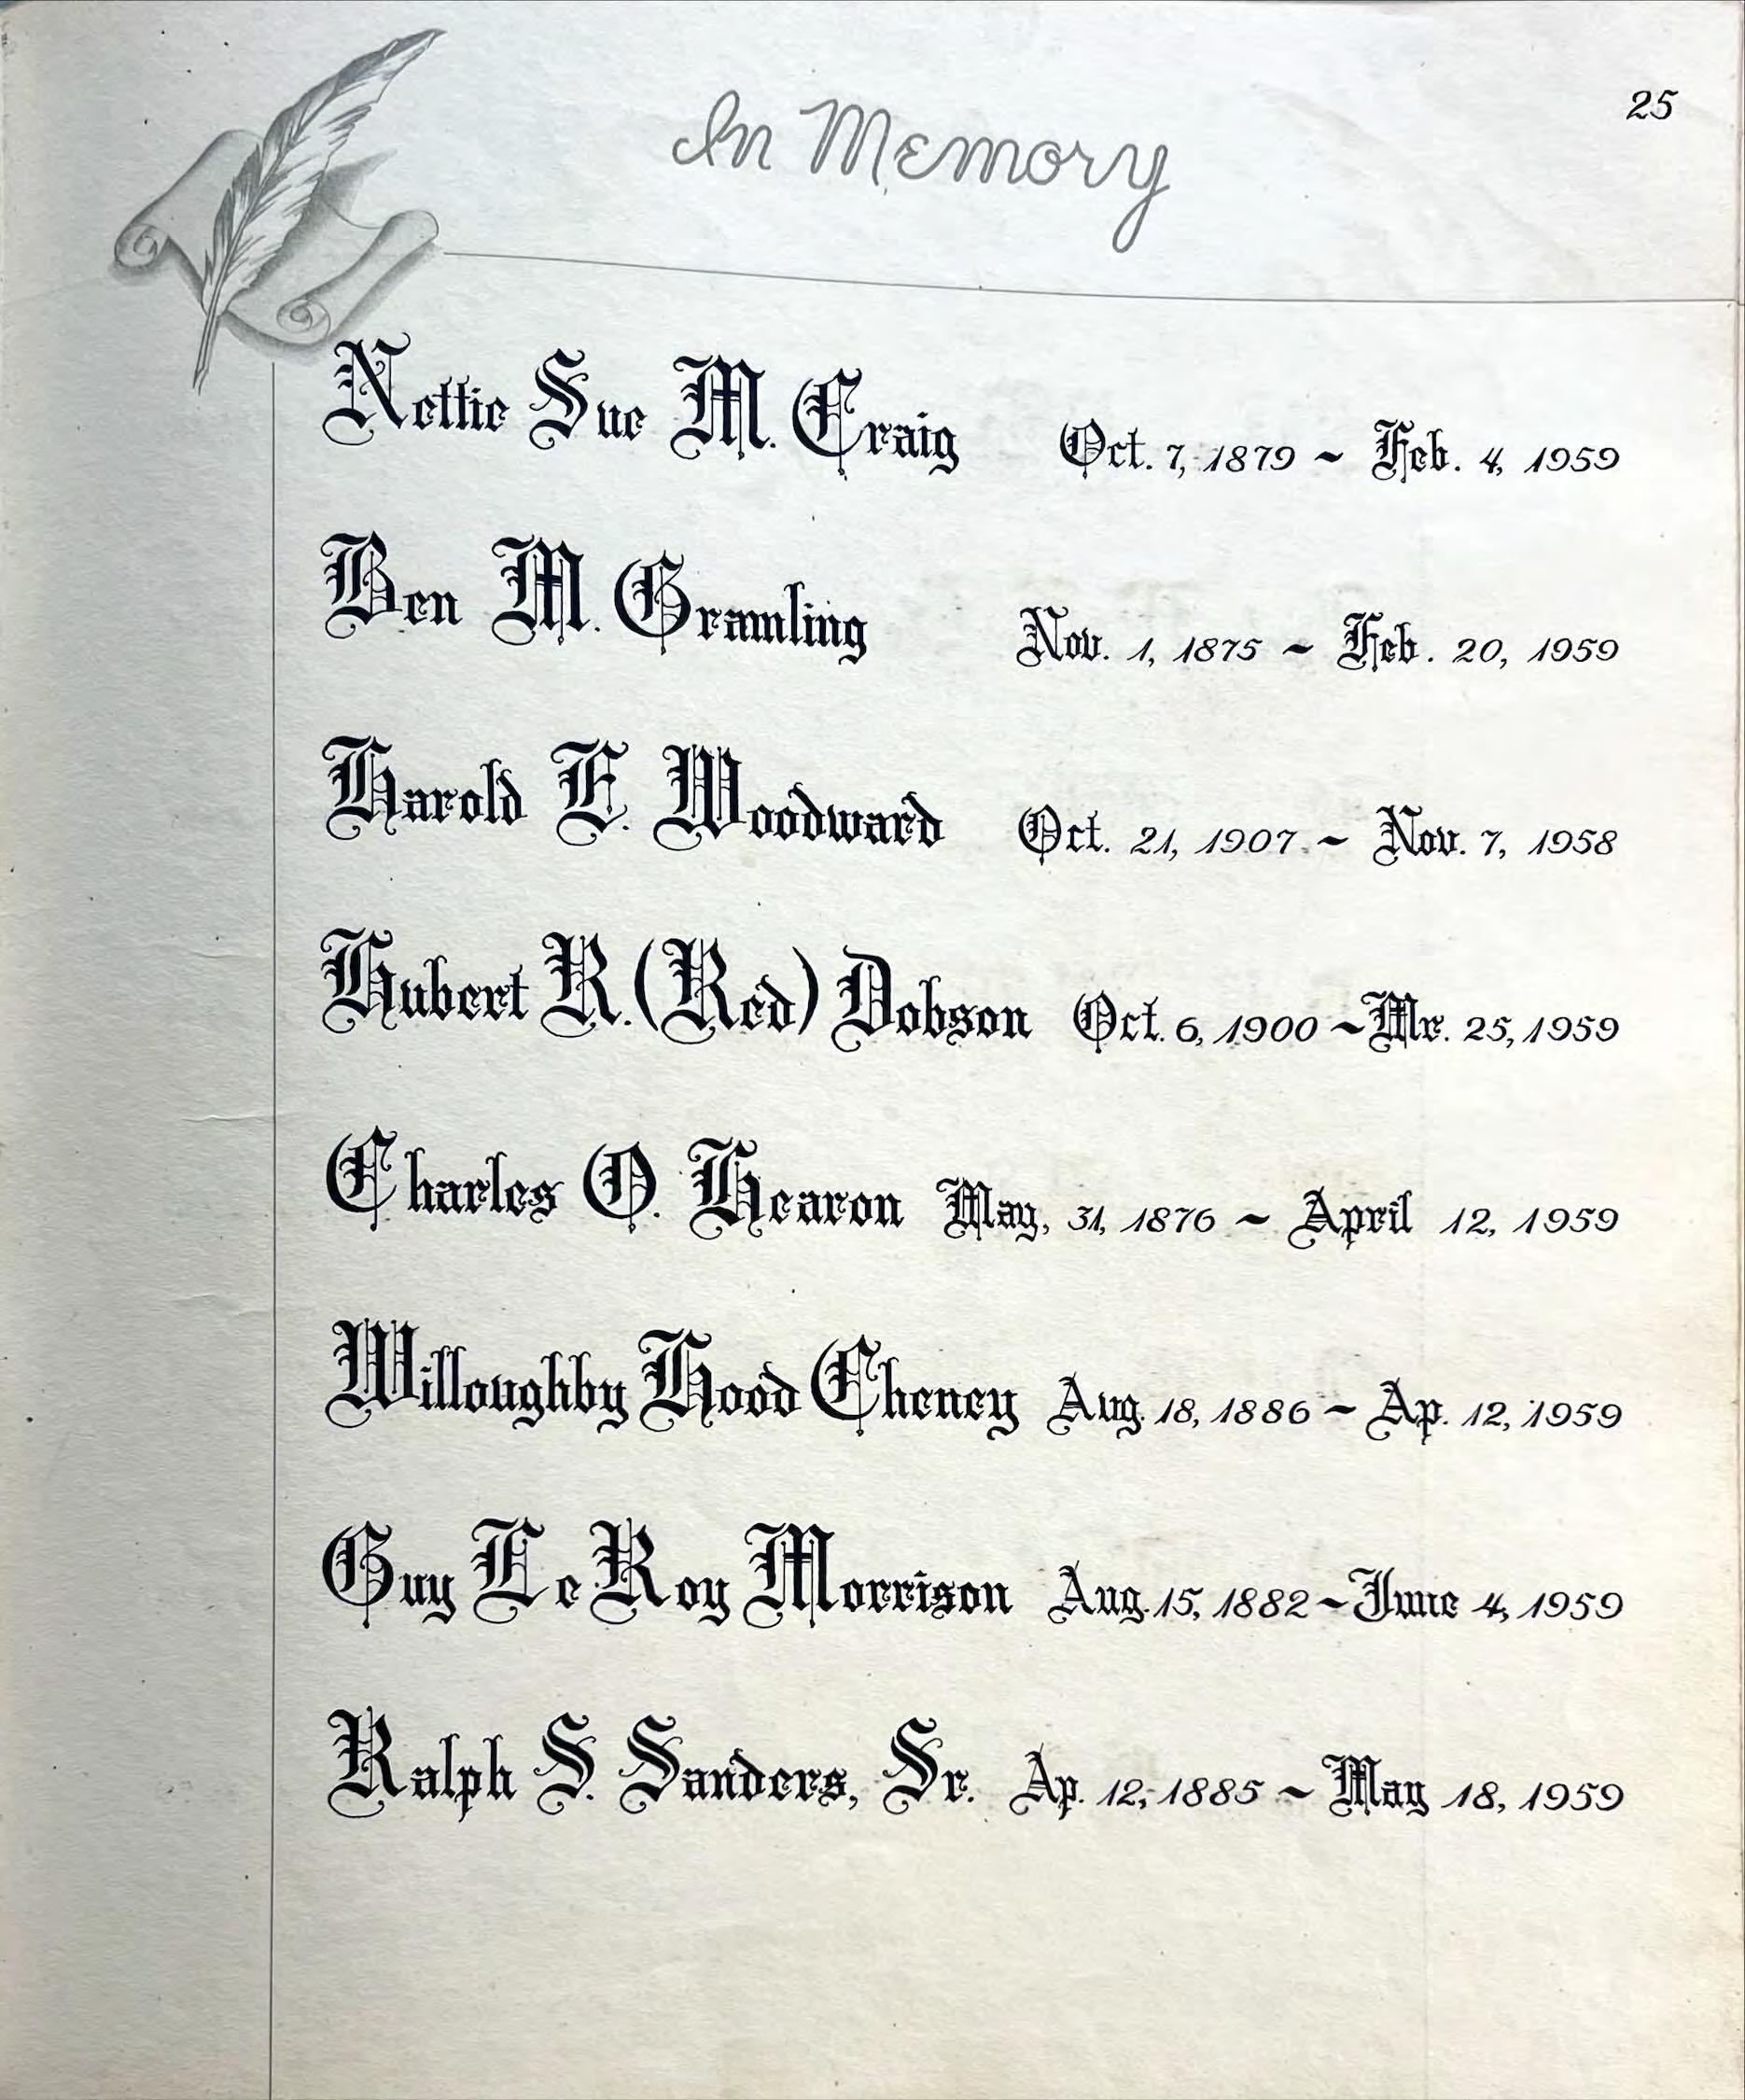 25
In Memory
Nettie Sue M. Craig Oct. 7, 1879 ~ Feb. 4, 1959
Ben M. Gramling Nov. 1, 1875 ~ Feb. 20, 1959
Harold E. Woodward Oct. 21, 1907 ~ Nov. 7, 1958
Hubert R. (Red) Dobson Oct. 6, 1900 ~ Mr. 25, 1959
Charles O. Hearon May, 31, 1876 ~ April 12, 1959
Willoughby Hood Cheney Aug. 18, 1886 ~ Ap. 12, 1959
Guy LeRoy Morrison Aug. 15, 1882 ~ June 4, 1959
Ralph S. Sanders, Sr. Ap. 12, 1885 ~ May 18, 1959